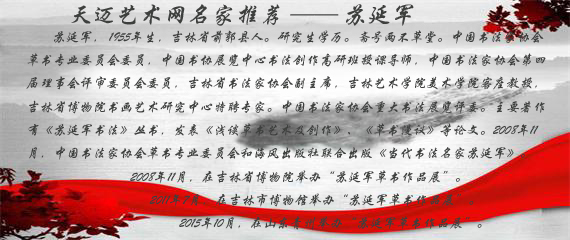 天迈艺术网名家推荐 —— 苏延军
苏延军，1955年生，吉林省前郭县人。研究生学历。斋号两不草堂。中国书法家协会
草书专业委员会委员，中国书协展览中心书法创作高研班授课导师，中国书法家协会第四
届理事会评审委员会委员，吉林省书法家协会副主席，吉林艺术学院美术学院客座教授，
吉林省博物院书画艺术研究中心特聘专家。中国书法家协会重大书法展览评委。主要著作
有《苏延军书法》丛书，发表《浅谈草书艺术及创作》、《草书漫谈》等论文。2008年11
月，中国书法家协会草书专业委员会和海风出版社联合出版《当代书法名家苏延军》
2008年11月，在吉林省博物院举办“苏延军草书作品展”。
2011年7月，在吉林市博物馆举办“苏延军草书作品展”。
2015年10月，在山东青州举办“苏延军草书作品展”。